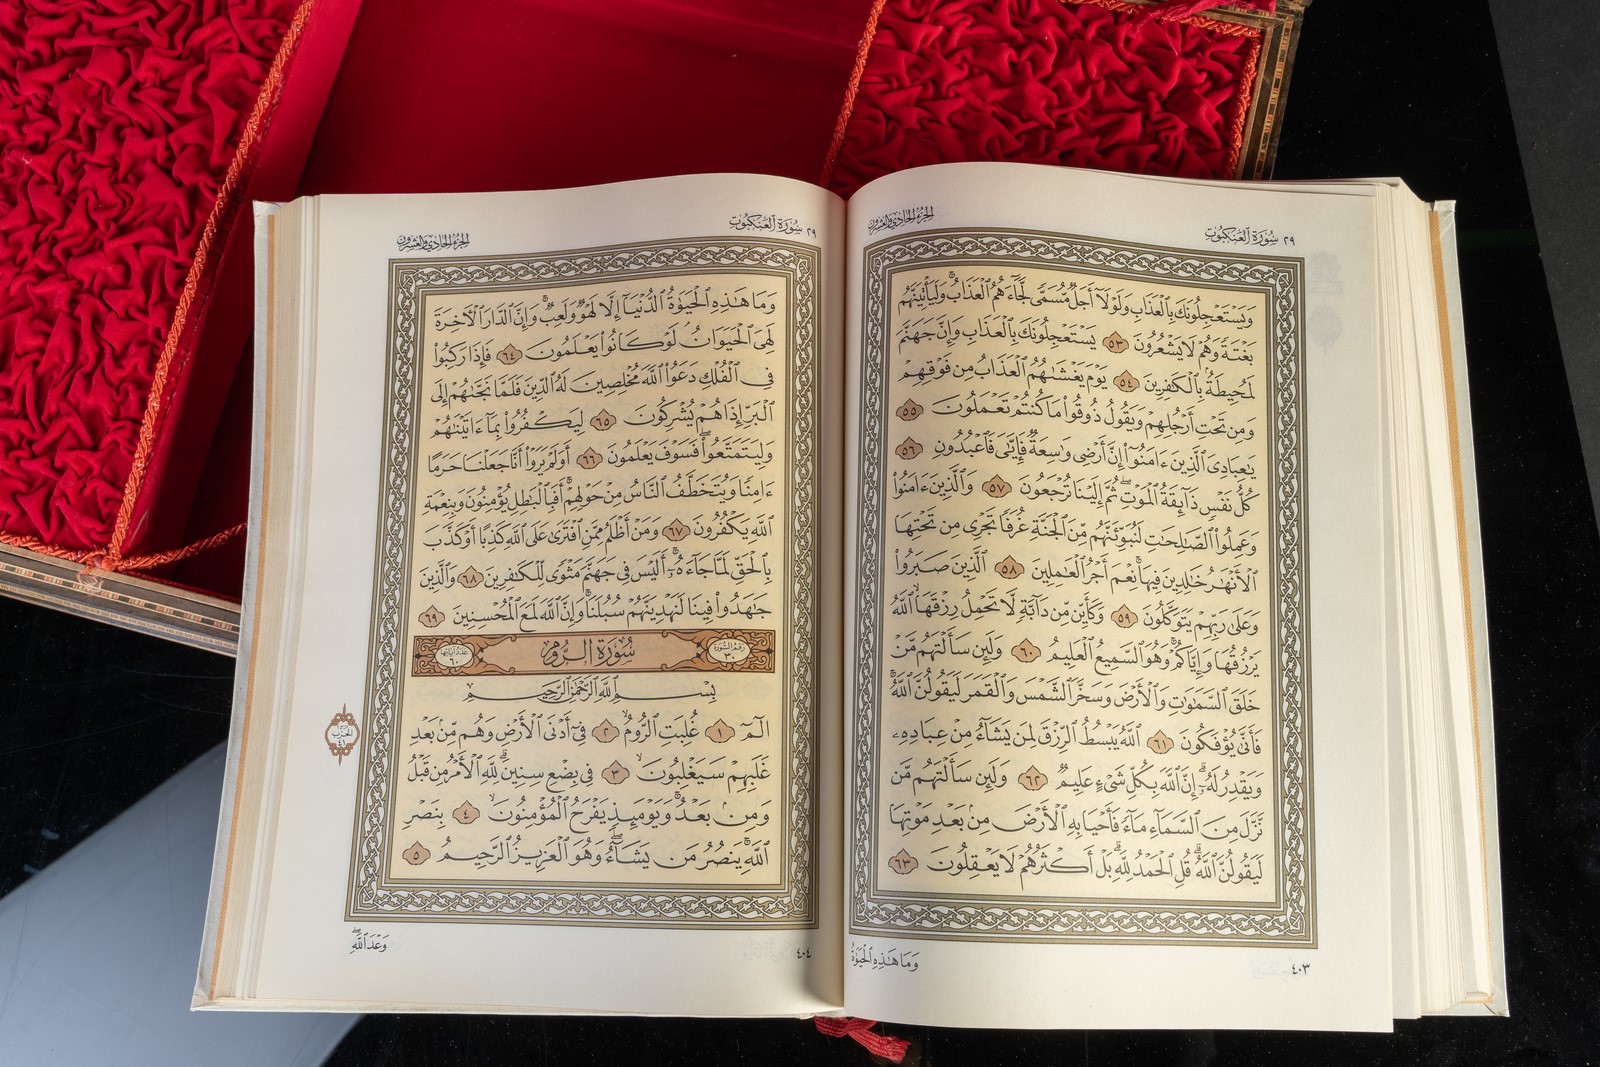 ٢٩ سُورَةُ ٱلْعَنكَبُوتِ
الجزء الحادي والعشرون
وَيَسْتَعْجِلُونَكَ بِٱلْعَذَابِ وَلَوْلَآ أَجَلٌ مُّسَمًّى لَّجَآءَهُمُ ٱلْعَذَابُ وَلَيَأْتِيَنَّهُم
بَغْتَةً وَهُمْ لَا يَشْعُرُونَ ٥٣ يَسْتَعْجِلُونَكَ بِٱلْعَذَابِ وَإِنَّ جَهَنَّمَ
لَمُحِيطَةٌۢ بِٱلْكَٰفِرِينَ ٥٤ يَوْمَ يَغْشَىٰهُمُ ٱلْعَذَابُ مِن فَوْقِهِمْ
وَمِن تَحْتِ أَرْجُلِهِمْ وَيَقُولُ ذُوقُوا۟ مَا كُنتُمْ تَعْمَلُونَ ٥٥
يَٰعِبَادِىَ ٱلَّذِينَ ءَامَنُوٓا۟ إِنَّ أَرْضِى وَٰسِعَةٌ فَإِيَّٰىَ فَٱعْبُدُونِ ٥٦
كُلُّ نَفْسٍ ذَآئِقَةُ ٱلْمَوْتِ ثُمَّ إِلَيْنَا تُرْجَعُونَ ٥٧ وَٱلَّذِينَ ءَامَنُوا۟
وَعَمِلُوا۟ ٱلصَّٰلِحَٰتِ لَنُبَوِّئَنَّهُم مِّنَ ٱلْجَنَّةِ غُرَفًا تَجْرِى مِن تَحْتِهَا
ٱلْأَنْهَٰرُ خَٰلِدِينَ فِيهَا نِعْمَ أَجْرُ ٱلْعَٰمِلِينَ ٥٨ ٱلَّذِينَ صَبَرُوا۟
وَعَلَىٰ رَبِّهِمْ يَتَوَكَّلُونَ ٥٩ وَكَأَيِّن مِّن دَآبَّةٍ لَّا تَحْمِلُ رِزْقَهَا ٱللَّهُ
يَرْزُقُهَا وَإِيَّاكُمْ وَهُوَ ٱلسَّمِيعُ ٱلْعَلِيمُ ٦٠ وَلَئِن سَأَلْتَهُم مَّنْ
خَلَقَ ٱلسَّمَٰوَٰتِ وَٱلْأَرْضَ وَسَخَّرَ ٱلشَّمْسَ وَٱلْقَمَرَ لَيَقُولُنَّ ٱللَّهُ
فَأَنَّىٰ يُؤْفَكُونَ ٦١ ٱللَّهُ يَبْسُطُ ٱلرِّزْقَ لِمَن يَشَآءُ مِنْ عِبَادِهِۦ
وَيَقْدِرُ لَهُۥٓ إِنَّ ٱللَّهَ بِكُلِّ شَىْءٍ عَلِيمٌ ٦٢ وَلَئِن سَأَلْتَهُم مَّن
نَّزَّلَ مِنَ ٱلسَّمَآءِ مَآءً فَأَحْيَا بِهِ ٱلْأَرْضَ مِنۢ بَعْدِ مَوْتِهَا
لَيَقُولُنَّ ٱللَّهُ قُلِ ٱلْحَمْدُ لِلَّهِ بَلْ أَكْثَرُهُمْ لَا يَعْقِلُونَ ٦٣
وَمَا هَٰذِهِ ٱلْحَيَوٰةُ
٤٠٣
٢٩ سُورَةُ ٱلْعَنكَبُوتِ
الجزء الحادي والعشرون
وَمَا هَٰذِهِ ٱلْحَيَوٰةُ ٱلدُّنْيَآ إِلَّا لَهْوٌ وَلَعِبٌ وَإِنَّ ٱلدَّارَ ٱلْءَاخِرَةَ
لَهِىَ ٱلْحَيَوَانُ لَوْ كَانُوا۟ يَعْلَمُونَ ٦٤ فَإِذَا رَكِبُوا۟
فِى ٱلْفُلْكِ دَعَوُا۟ ٱللَّهَ مُخْلِصِينَ لَهُ ٱلدِّينَ فَلَمَّا نَجَّىٰهُمْ إِلَى
ٱلْبَرِّ إِذَا هُمْ يُشْرِكُونَ ٦٥ لِيَكْفُرُوا۟ بِمَآ ءَاتَيْنَٰهُمْ
وَلِيَتَمَتَّعُوا۟ فَسَوْفَ يَعْلَمُونَ ٦٦ أَوَلَمْ يَرَوْا۟ أَنَّا جَعَلْنَا حَرَمًا
ءَامِنًا وَيُتَخَطَّفُ ٱلنَّاسُ مِنْ حَوْلِهِمْ أَفَبِٱلْبَٰطِلِ يُؤْمِنُونَ وَبِنِعْمَةِ
ٱللَّهِ يَكْفُرُونَ ٦٧ وَمَنْ أَظْلَمُ مِمَّنِ ٱفْتَرَىٰ عَلَى ٱللَّهِ كَذِبًا أَوْ كَذَّبَ
بِٱلْحَقِّ لَمَّا جَآءَهُۥٓ أَلَيْسَ فِى جَهَنَّمَ مَثْوًى لِّلْكَٰفِرِينَ ٦٨ وَٱلَّذِينَ
جَٰهَدُوا۟ فِينَا لَنَهْدِيَنَّهُمْ سُبُلَنَا وَإِنَّ ٱللَّهَ لَمَعَ ٱلْمُحْسِنِينَ ٦٩
رقم السورة ٣٠ سُورَةُ الرُّومِ عدد آياتها ٦٠
بِسْمِ ٱللَّهِ ٱلرَّحْمَٰنِ ٱلرَّحِيمِ
الٓمٓ ١ غُلِبَتِ ٱلرُّومُ ٢ فِىٓ أَدْنَى ٱلْأَرْضِ وَهُم مِّنۢ بَعْدِ
غَلَبِهِمْ سَيَغْلِبُونَ ٣ فِى بِضْعِ سِنِينَ لِلَّهِ ٱلْأَمْرُ مِن قَبْلُ
وَمِنۢ بَعْدُ وَيَوْمَئِذٍ يَفْرَحُ ٱلْمُؤْمِنُونَ ٤ بِنَصْرِ
ٱللَّهِ يَنصُرُ مَن يَشَآءُ وَهُوَ ٱلْعَزِيزُ ٱلرَّحِيمُ ٥
الحزب
٤١
٤٠٤
وَعْدَ ٱللَّهِ